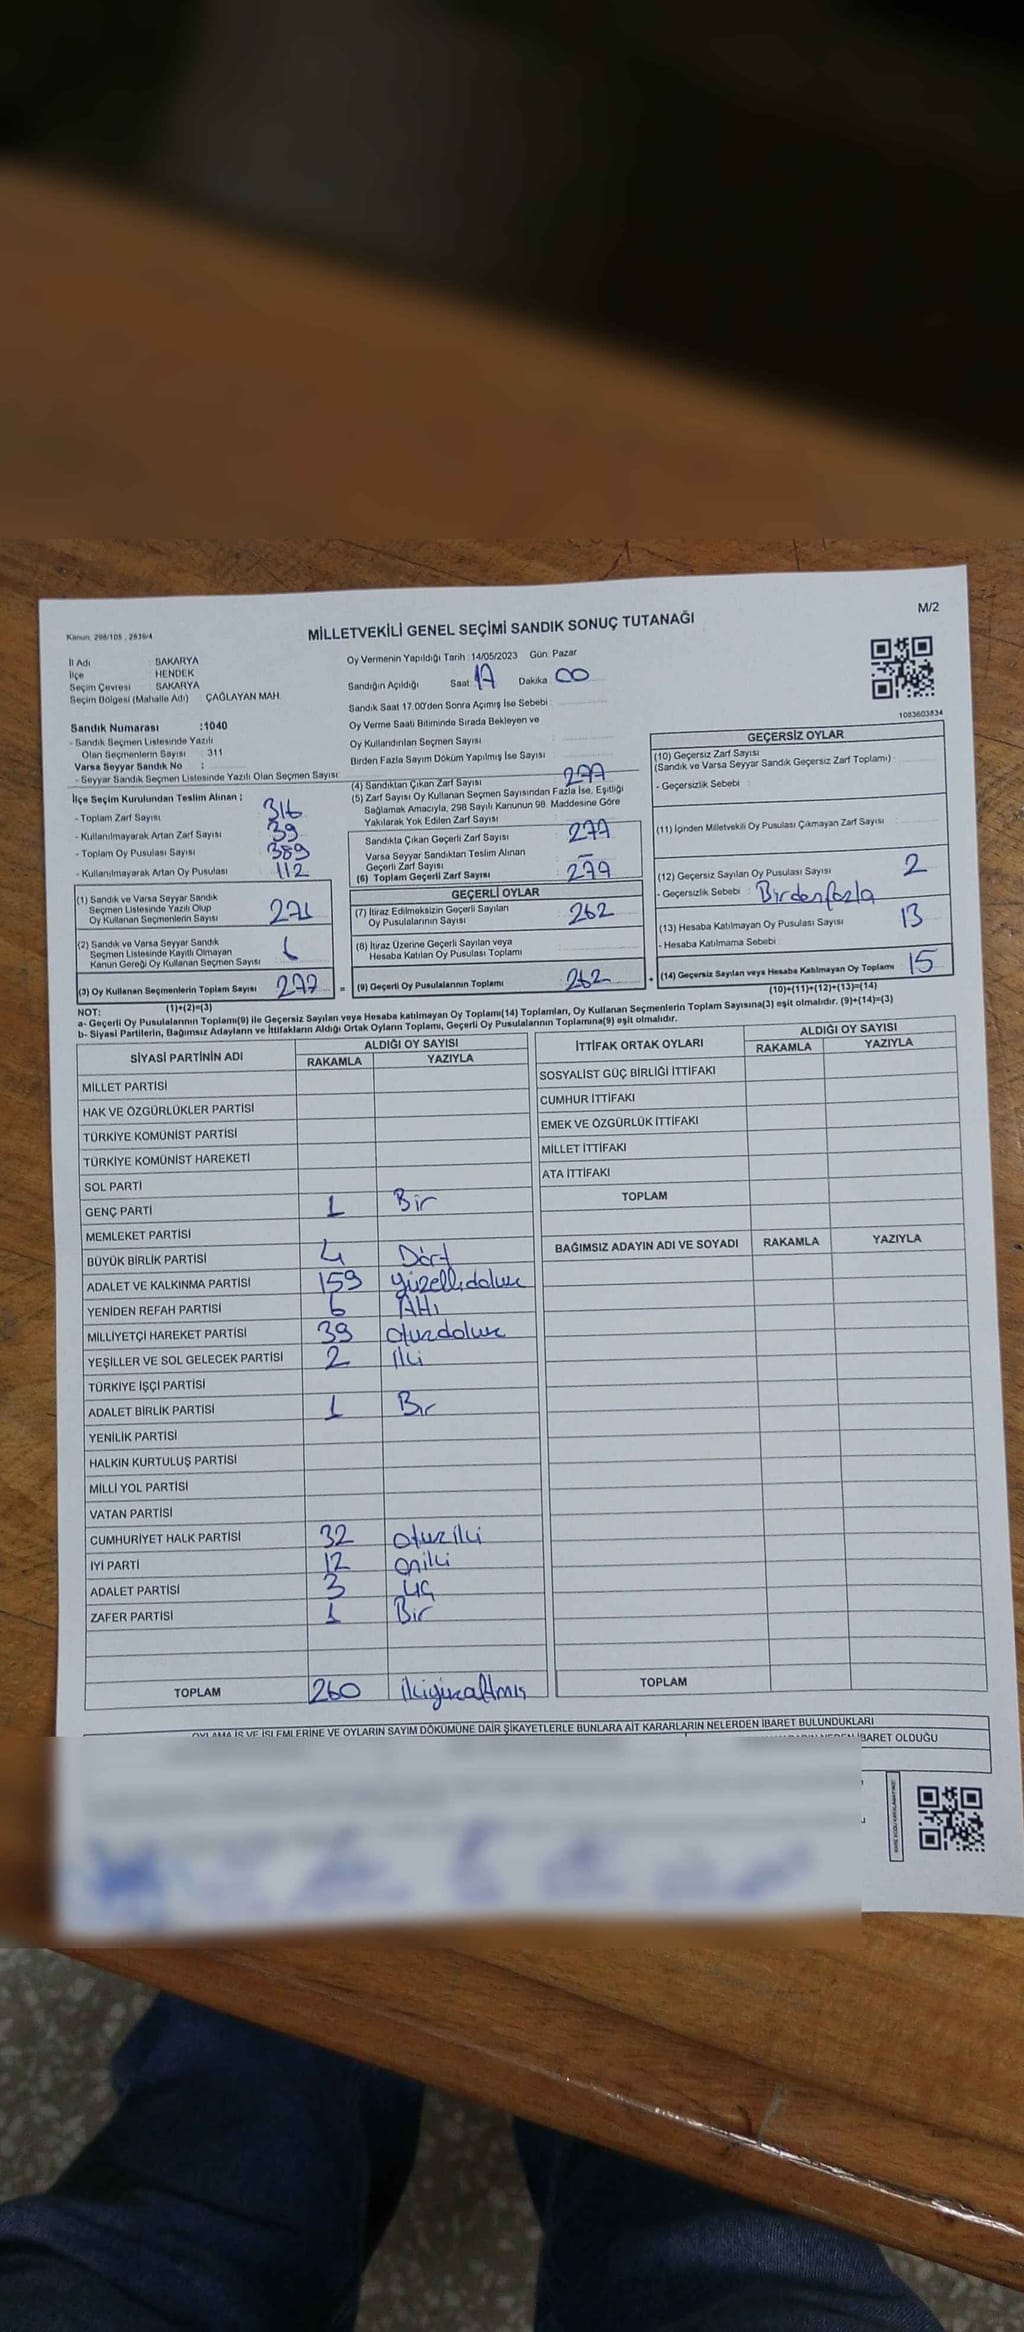 Kanun: 298/105 , 2839/4
MİLLETVEKİLİ GENEL SEÇİMİ SANDIK SONUÇ TUTANAĞI
M/2
İl Adı : SAKARYA
İlçe : HENDEK
Seçim Çevresi : SAKARYA
Seçim Bölgesi (Mahalle Adı) : ÇAĞLAYAN MAH.
Oy Vermenin Yapıldığı Tarih : 14/05/2023 Gün: Pazar
Sandığın Açıldığı Saat: 17 Dakika: 00
Sandık Saat 17:00'den Sonra Açılmış İse Sebebi :
Oy Verme Saati Bitiminde Sırada Bekleyen ve
Oy Kullandırılan Seçmen Sayısı :
Birden Fazla Sayım Döküm Yapılmış İse Sayısı :
1083603834
Sandık Numarası : 1040
- Sandık Seçmen Listesinde Yazılı
Olan Seçmenlerin Sayısı : 311
Varsa Seyyar Sandık No :
- Seyyar Sandık Seçmen Listesinde Yazılı Olan Seçmen Sayısı:
İlçe Seçim Kurulundan Teslim Alınan ;
- Toplam Zarf Sayısı : 316
- Kullanılmayarak Artan Zarf Sayısı : 39
- Toplam Oy Pusulası Sayısı : 389
- Kullanılmayarak Artan Oy Pusulası : 112
(1) Sandık ve Varsa Seyyar Sandık
Seçmen Listesinde Yazılı Olup
Oy Kullanan Seçmenlerin Sayısı : 271
(2) Sandık ve Varsa Seyyar Sandık
Seçmen Listesinde Kayıtlı Olmayan
Kanun Gereği Oy Kullanan Seçmen Sayısı : 6
(3) Oy Kullanan Seçmenlerin Toplam Sayısı : 277
(1)+(2)=(3)
(4) Sandıktan Çıkan Zarf Sayısı : 277
(5) Zarf Sayısı Oy Kullanan Seçmen Sayısından Fazla İse, Eşitliği
Sağlamak Amacıyla, 298 Sayılı Kanunun 98. Maddesine Göre
Yakılarak Yok Edilen Zarf Sayısı :
Sandıkta Çıkan Geçerli Zarf Sayısı : 277
Varsa Seyyar Sandıktan Teslim Alınan
Geçerli Zarf Sayısı : –
(6) Toplam Geçerli Zarf Sayısı : 277
GEÇERLİ OYLAR
(7) İtiraz Edilmeksizin Geçerli Sayılan
Oy Pusulalarının Sayısı : 262
(8) İtiraz Üzerine Geçerli Sayılan veya
Hesaba Katılan Oy Pusulası Toplamı :
(9) Geçerli Oy Pusulalarının Toplamı : 262
GEÇERSİZ OYLAR
(10) Geçersiz Zarf Sayısı
(Sandık ve Varsa Seyyar Sandık Geçersiz Zarf Toplamı) :
- Geçersizlik Sebebi :
(11) İçinden Milletvekili Oy Pusulası Çıkmayan Zarf Sayısı :
(12) Geçersiz Sayılan Oy Pusulası Sayısı : 2
- Geçersizlik Sebebi : Birdenfazla
(13) Hesaba Katılmayan Oy Pusulası Sayısı : 13
- Hesaba Katılmama Sebebi :
(14) Geçersiz Sayılan veya Hesaba Katılmayan Oy Toplamı : 15
(10)+(11)+(12)+(13)=(14)
NOT:
a- Geçerli Oy Pusulalarının Toplamı(9) ile Geçersiz Sayılan veya Hesaba katılmayan Oy Toplamı(14) Toplamları, Oy Kullanan Seçmenlerin Toplam Sayısına(3) eşit olmalıdır. (9)+(14)=(3)
b- Siyasi Partilerin, Bağımsız Adayların ve İttifakların Aldığı Ortak Oyların Toplamı, Geçerli Oy Pusulalarının Toplamına(9) eşit olmalıdır.
SİYASİ PARTİNİN ADI ALDIĞI OY SAYISI
RAKAMLA YAZIYLA
MİLLET PARTİSİ
HAK VE ÖZGÜRLÜKLER PARTİSİ
TÜRKİYE KOMÜNİST PARTİSİ
TÜRKİYE KOMÜNİST HAREKETİ
SOL PARTİ
GENÇ PARTİ 1 Bir
MEMLEKET PARTİSİ
BÜYÜK BİRLİK PARTİSİ 4 Dört
ADALET VE KALKINMA PARTİSİ 159 yüzellidokuz
YENİDEN REFAH PARTİSİ 6 Altı
MİLLİYETÇİ HAREKET PARTİSİ 39 otuzdokuz
YEŞİLLER VE SOL GELECEK PARTİSİ 2 İki
TÜRKİYE İŞÇİ PARTİSİ
ADALET BİRLİK PARTİSİ 1 Bir
YENİLİK PARTİSİ
HALKIN KURTULUŞ PARTİSİ
MİLLİ YOL PARTİSİ
VATAN PARTİSİ
CUMHURİYET HALK PARTİSİ 32 otuziki
İYİ PARTİ 12 oniki
ADALET PARTİSİ 3 üç
ZAFER PARTİSİ 1 Bir
TOPLAM 260 ikiyüzaltmış
İTTİFAK ORTAK OYLARI ALDIĞI OY SAYISI
RAKAMLA YAZIYLA
SOSYALİST GÜÇ BİRLİĞİ İTTİFAKI
CUMHUR İTTİFAKI
EMEK VE ÖZGÜRLÜK İTTİFAKI
MİLLET İTTİFAKI
ATA İTTİFAKI
TOPLAM
BAĞIMSIZ ADAYIN ADI VE SOYADI RAKAMLA YAZIYLA
TOPLAM
OYLAMA İŞ VE İŞLEMLERİNE VE OYLARIN SAYIM DÖKÜMÜNE DAİR ŞİKAYETLERLE BUNLARA AİT KARARLARIN NELERDEN İBARET BULUNDUKLARI
İBARET OLDUĞU